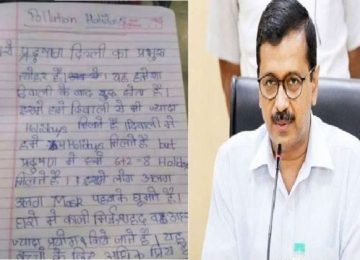 Pollution Holidays
प्रदूषण दिल्ली का प्रमुख
त्योहार है। यह हमेशा
दिवाली के बाद शुरू होता है।
इसमें हमें दिवाली से भी ज्यादा
Holidays मिलती हैं दिवाली में
हमें Holidays मिलती हैं but
प्रदूषण में हमें 6+2=8 Holidays
मिलती हैं। इसमें लोग अलग
अलग Mask पहनके घूमते हैं।
घरों में काली मिर्च शहद
ज्यादा प्रयोग किये जाते हैं। यह
बच्चों के लिए अधिक प्रिय है